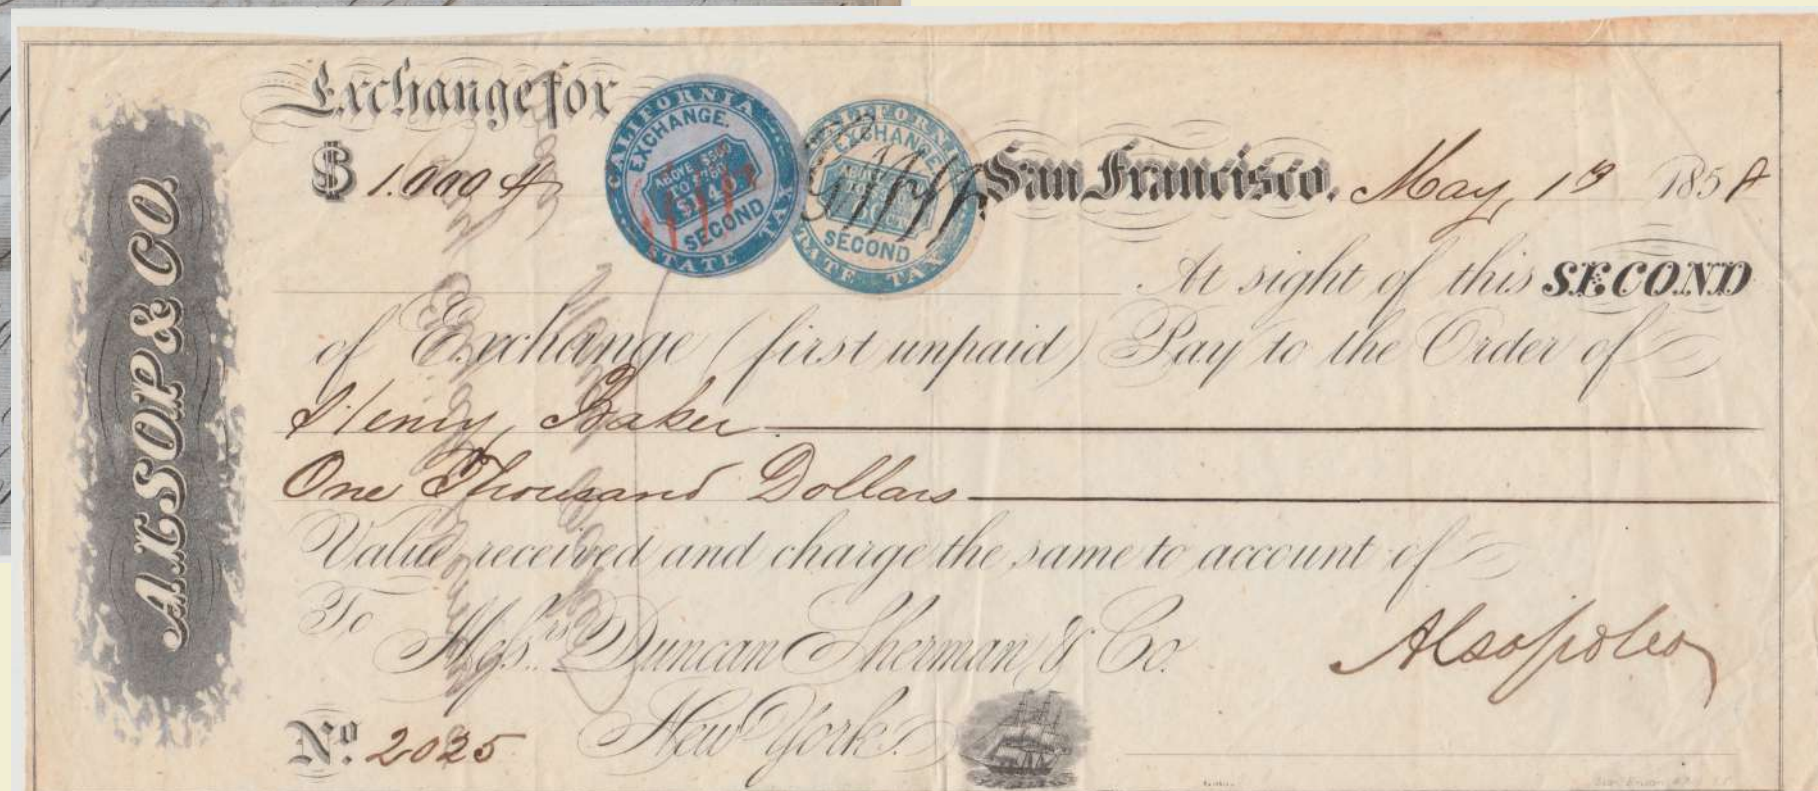 ALSOP & CO.
Exchange for
$ 1.000
CALIFORNIA
EXCHANGE.
ABOVE $500
SECOND
STATE TAX
CALIFORNIA
EXCHANGE
SECOND
STATE TAX
San Francisco, May, 19 1858
At sight of this SECOND
of Exchange (first unpaid) Pay to the Order of
Henry Baker
One Thousand Dollars
Value received and charge the same to account of
To Messrs Duncan Sherman & Co.
Alsop & Co
No. 2025 New York.